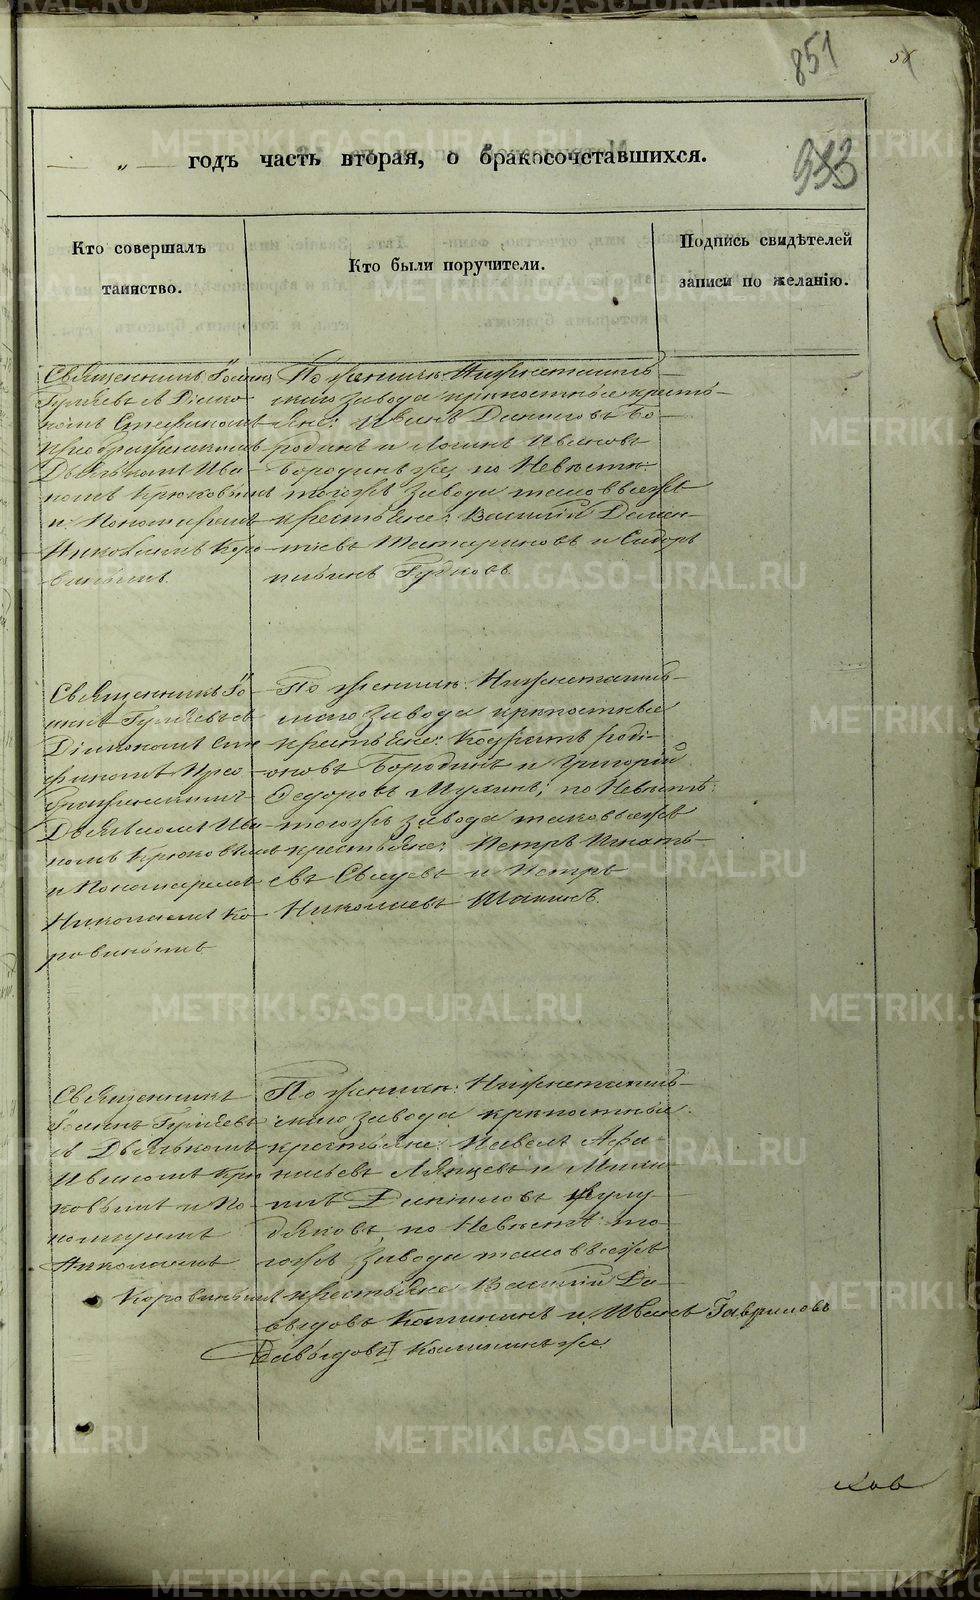 851
58
годъ часть вторая, о бракосочетавшихся.
933
Кто совершалъ
таинство.
Кто были поручители.
Подпись свидѣтелей
записи по желанію.
Священникъ Іоаннъ
Гуляевъ съ Діако
номъ Стефаномъ
Преображенскимъ
Дьячкомъ Ива-
номъ Крюковымъ
и Пономаремъ
Николаемъ Коро
винымъ.
По женихѣ: Нижнетагиль-
скаго завода крѣпостные кресть-
яне: Иванъ Даниловъ Бо-
родинъ и Логинъ Ивановъ
Бородинъ же, по Невѣстѣ:
тогожъ завода таковыежъ
крестьяне: Василій Демен-
тіевъ Татариновъ и Сидоръ
Гудковъ.
Священникъ Іо-
аннъ Гуляевъ съ
Діакономъ Сте
фаномъ Прео
браженскимъ
Дьячкомъ Ива
номъ Крюковымъ
и Пономаремъ
Николаемъ Ко
ровинымъ
По женихѣ: Нижнетагиль-
скаго завода крѣпостные
крестьяне: Кодратъ Роді-
оновъ Бородинъ и Григорій
Федоровъ Мухинъ; по Невѣстѣ:
тогожъ завода таковыежъ
крестьяне: Петръ Игнать-
евъ и Петръ
Николаевъ
Священникъ
Іоаннъ Гуляевъ
съ Дьячкомъ
Иваномъ Крю
ковымъ и По-
номаремъ
Николаемъ
Коровинымъ
По женихѣ: Нижнетагиль-
скаго завода крѣпостные
крестьяне: Павелъ Афа-
насьевъ Ляпцевъ и Миха-
илъ Даниловъ
по Невѣстѣ: то-
гожъ завода таковыежъ
крестьяне Василій Да-
выдовъ Калининъ и Иванъ Гавриловъ
Давыдовъ Калининъ же
METRIKI.GASO-URAL.RU